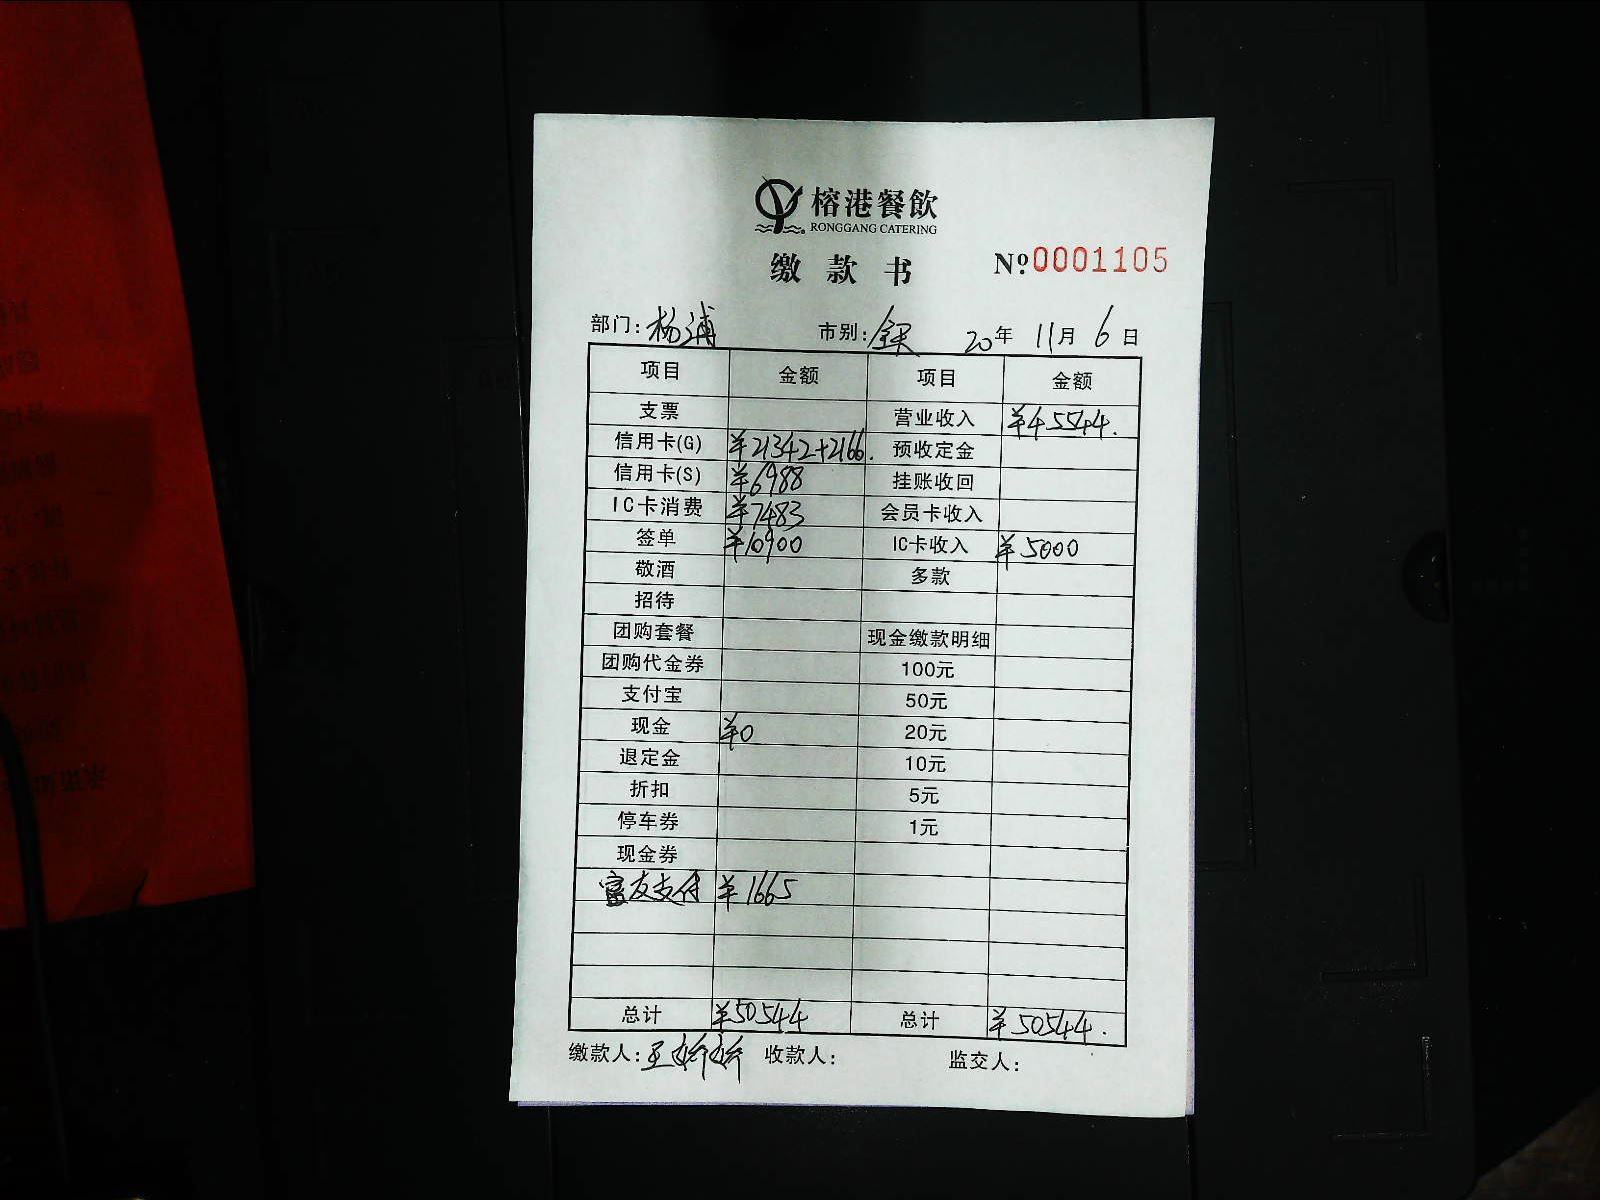 榕港餐飲
RONGGANG CATERING
缴款书 №0001105
部门：杨浦 市别：全天 20年 11月 6日
项目 金额 项目 金额
支票 营业收入 ¥45544.
信用卡(G) ¥21342+2166. 预收定金
信用卡(S) ¥6988 挂账收回
IC卡消费 ¥7483 会员卡收入
签单 ¥10900 IC卡收入 ¥5000
敬酒 多款
招待
团购套餐 现金缴款明细
团购代金券 100元
支付宝 50元
现金 ¥0 20元
退定金 10元
折扣 5元
停车券 1元
现金券
富友支付 ¥1665
总计 ¥50544 总计 ¥50544.
缴款人：王娇娇 收款人： 监交人：